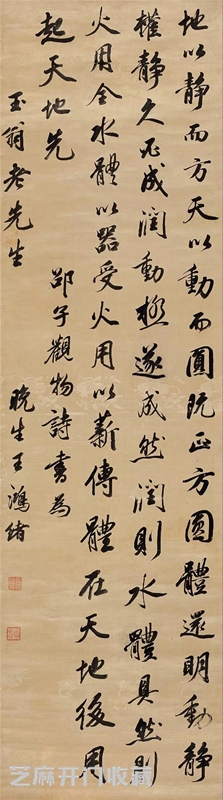 地以靜而方天以動而圓既正方圓體還明動靜
權靜久必成潤動極遂成然潤則水體具然則
火用全水體以器受火用以薪傳體在天地後用
起天地先 邵子觀物詩書為
玉翁老先生 晚生王鴻緒
芝麻开门收藏